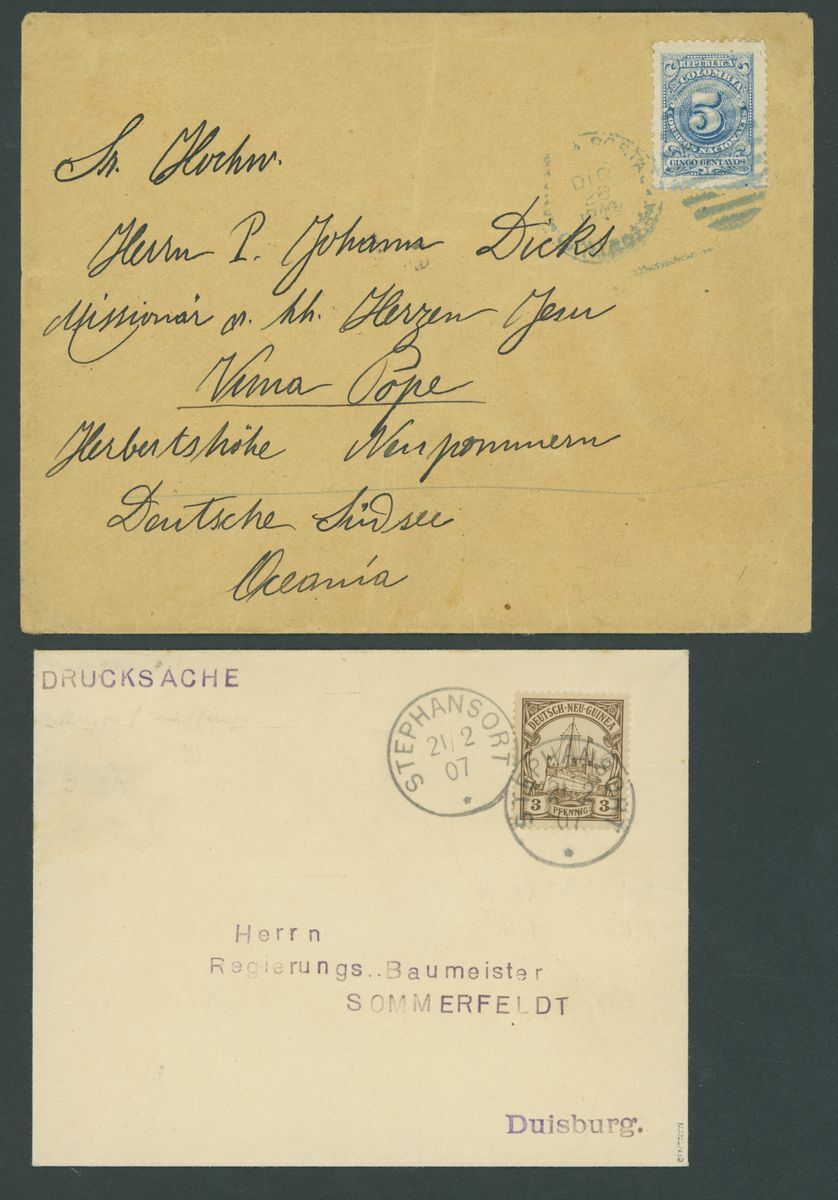 REPUBLICA
DE COLOMBIA
5
CORREOS NACIONALES
CINCO CENTAVOS
DIC
Sr. Hochw.
Herrn P. Johann Dicks
Missionär v. hh. Herzen Jesu
Vuna Pope
Herbertshöhe Neupommern
Deutsche Südsee
Oceanía
DRUCKSACHE
STEPHANSORT
21/2
07
DEUTSCH-NEU-GUINEA
3 PFENNIG 3
STEPHANSORT
07
Herrn
Regierungs..Baumeister
SOMMERFELDT
Duisburg.